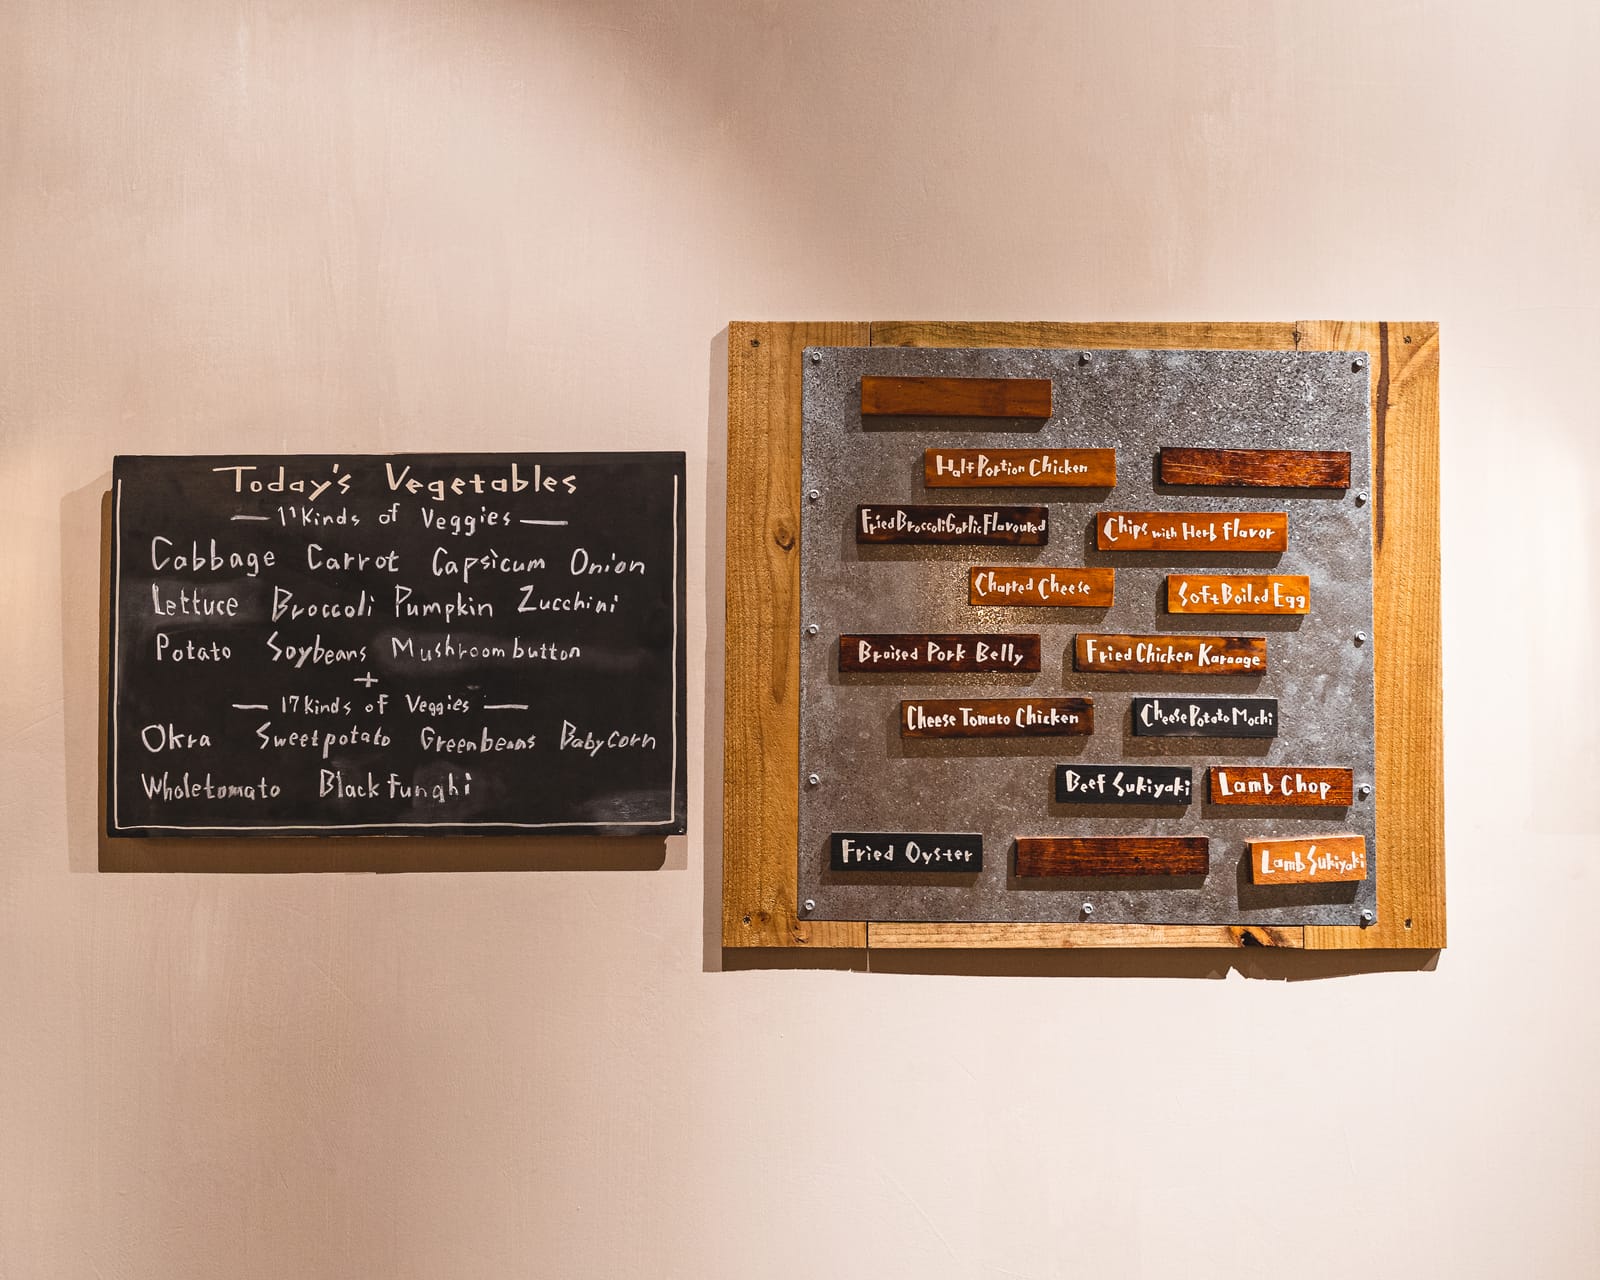 Today's Vegetables
11 Kinds of Veggies
Cabbage Carrot Capsicum Onion
Lettuce Broccoli Pumpkin Zucchini
Potato Soybeans Mushroom button
+
17 Kinds of Veggies
Okra Sweetpotato Greenbeans Baby Corn
Wholetomato Black Funghi
Half Portion Chicken
Fried Broccoli Garlic Flavoured
Chips with Herb Flavor
Charred Cheese
Soft Boiled Egg
Braised Pork Belly
Fried Chicken Karaage
Cheese Tomato Chicken
Cheese Potato Mochi
Beef Sukiyaki
Lamb Chop
Fried Oyster
Lamb Sukiyaki